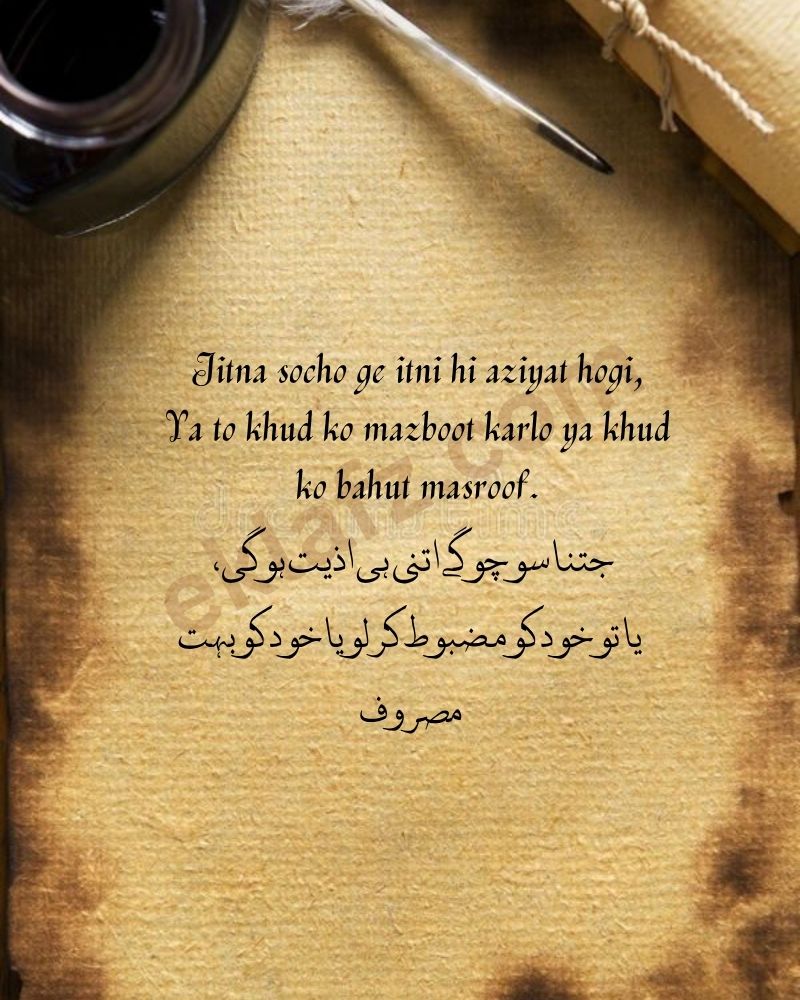 Jitna socho ge itni hi aziyat hogi,
Ya to khud ko mazboot karlo ya khud
ko bahut masroof.
جتنا سوچو گے اتنی ہی اذیت ہوگی،
یا تو خود کو مضبوط کر لو یا خود کو بہت
مصروف